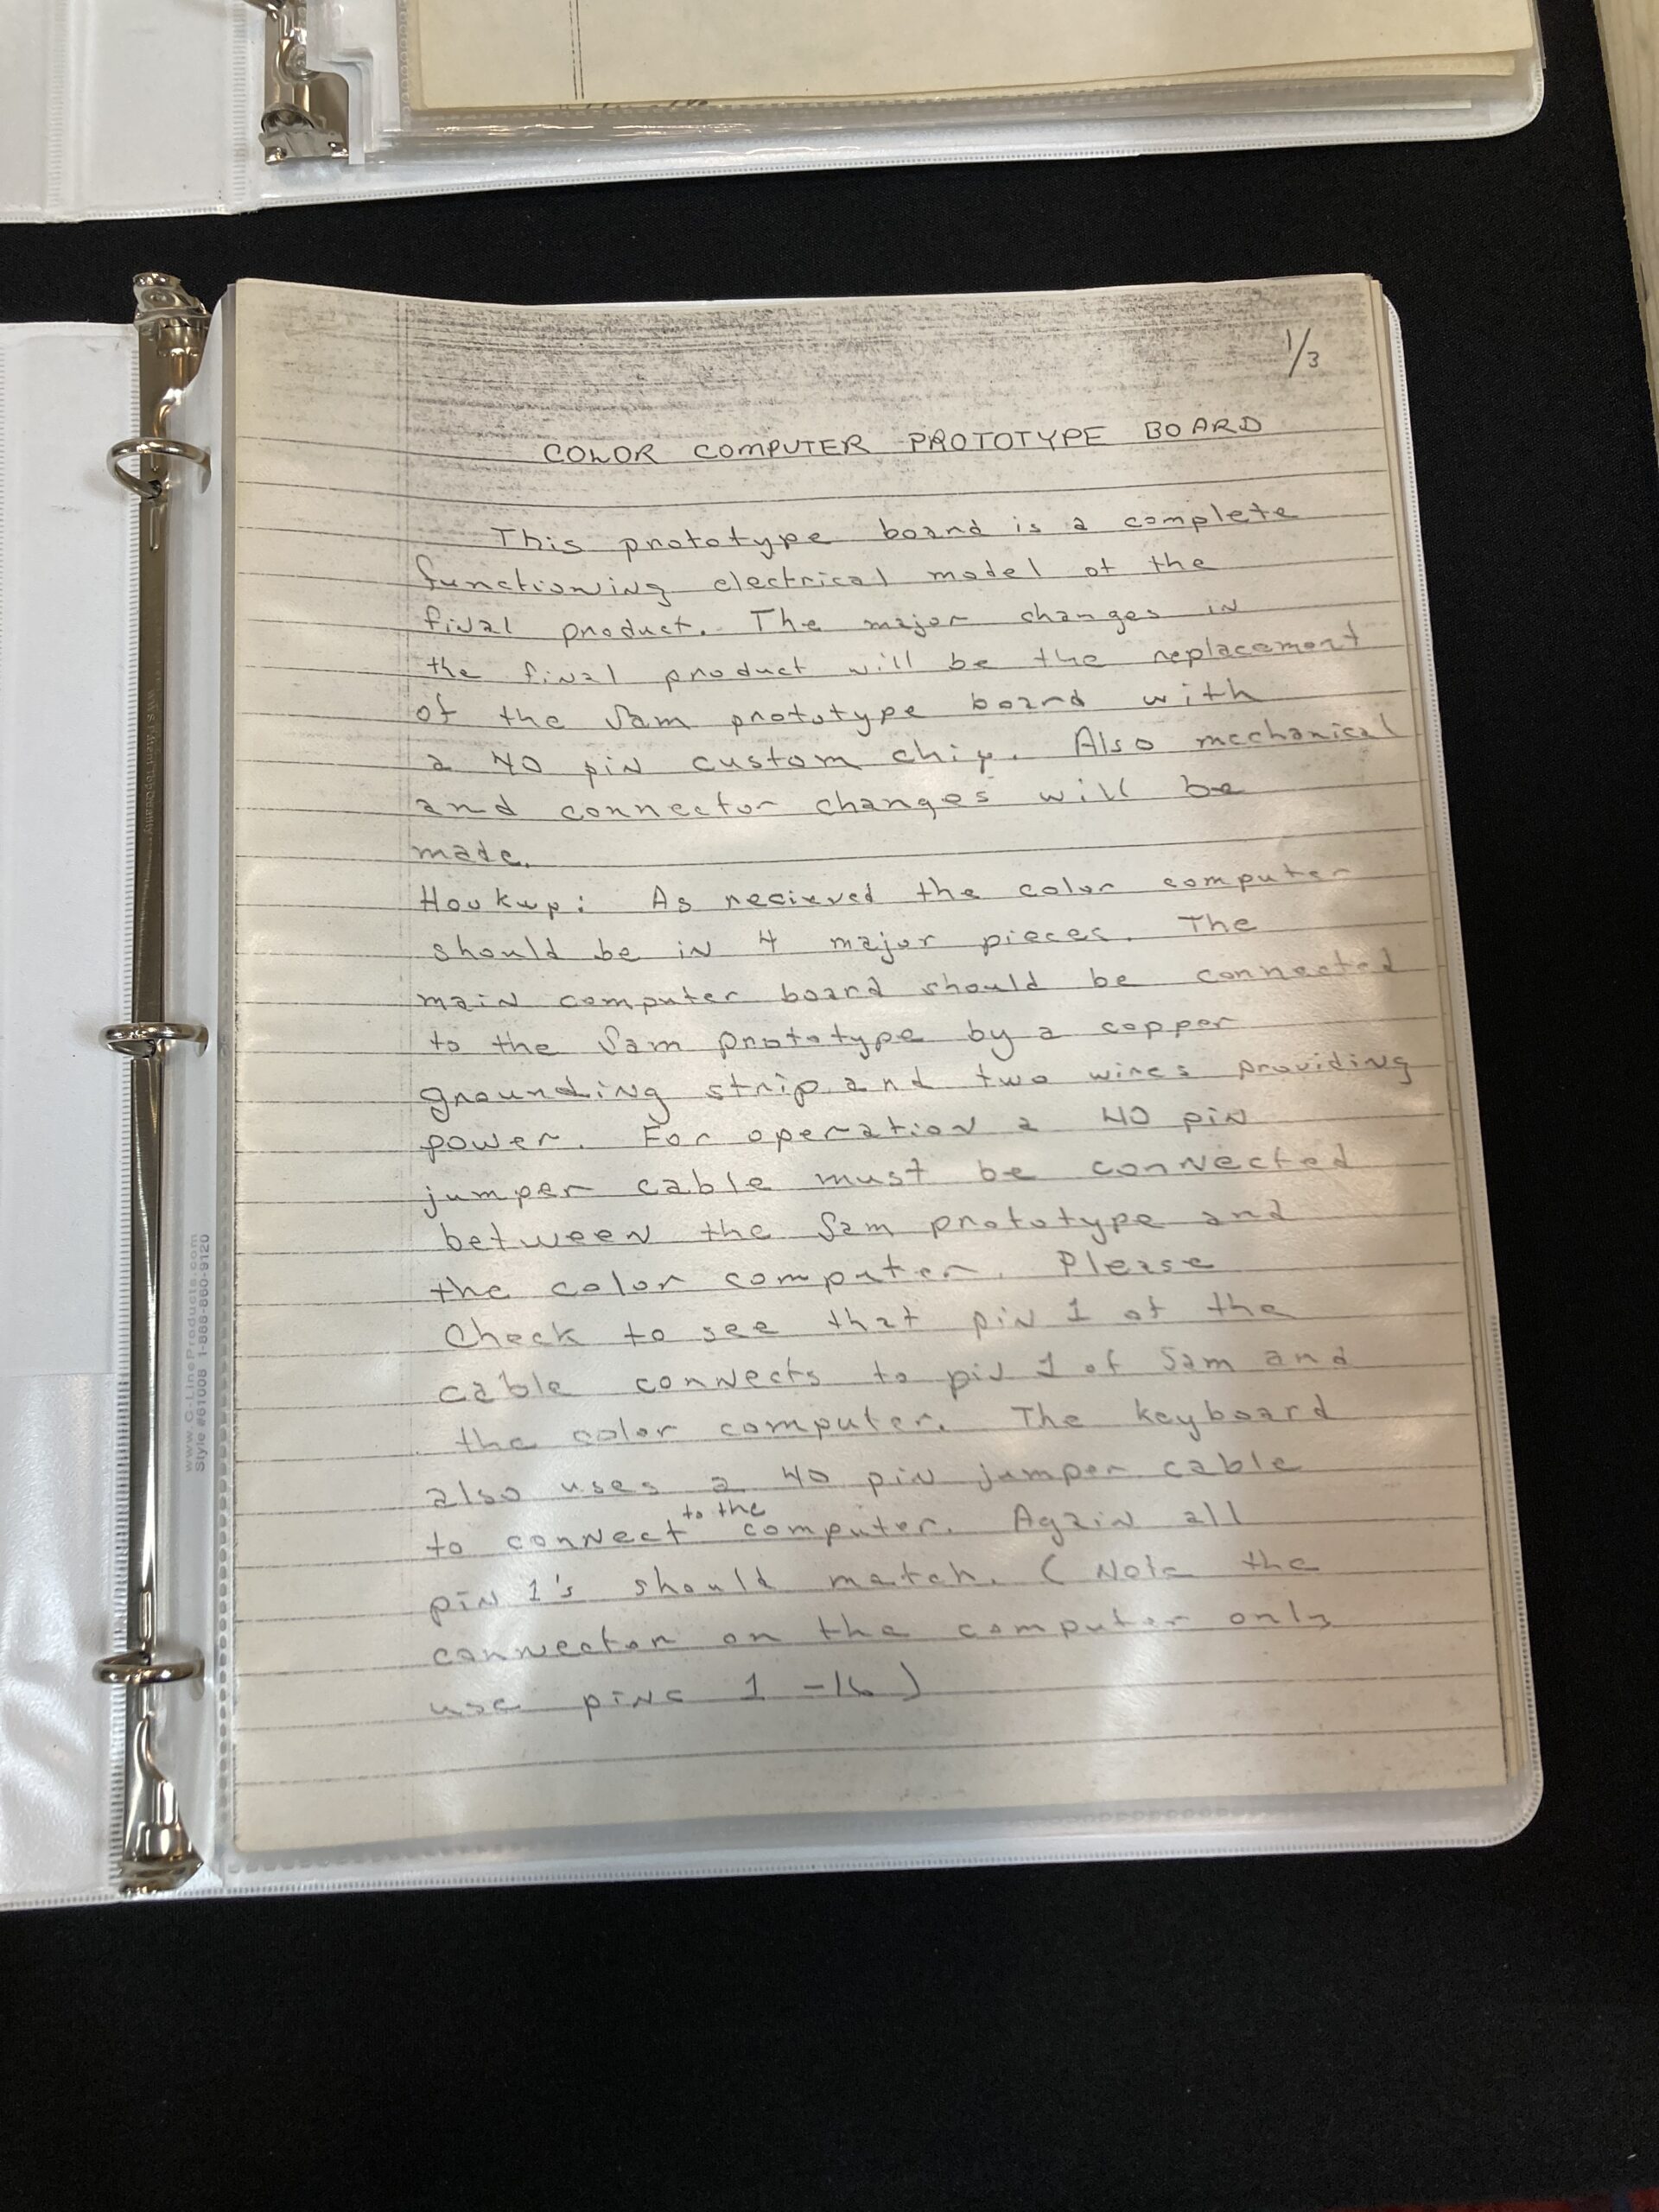 1/3
COLOR COMPUTER PROTOTYPE BOARD
This prototype board is a complete
functioning electrical model of the
final product. The major changes in
the final product will be the replacement
of the Sam prototype board with
a 40 pin custom chip. Also mechanical
and connector changes will be
made.
Hookup: As recieved the color computer
should be in 4 major pieces. The
main computer board should be connected
to the Sam prototype by a copper
grounding strip and two wires providing
power. For operation a 40 pin
jumper cable must be connected
between the Sam prototype and
the color computer. Please
Check to see that pin 1 of the
cable connects to pin 1 of Sam and
the color computer. The keyboard
also uses a 40 pin jumper cable
to connect to the computer. Again all
pin 1's should match. (Note the
connector on the computer only
use pins 1-16)
www.C-LineProducts.com
Style #61008 1-888-860-9120